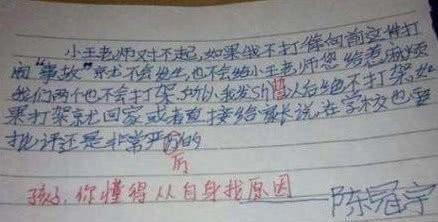 小王老师对不起,如果我不打徐向前这件打
向"事故"就不会发生,也不会给小王老师您给惹麻烦
我们两个也不会打架,所以,我发shì以后绝不打架,如
果打架就回家或者直接给家长说,在学校也要
批评还是非常严的
厉
孩子,你懂得从自身找原因
——陈冠宇